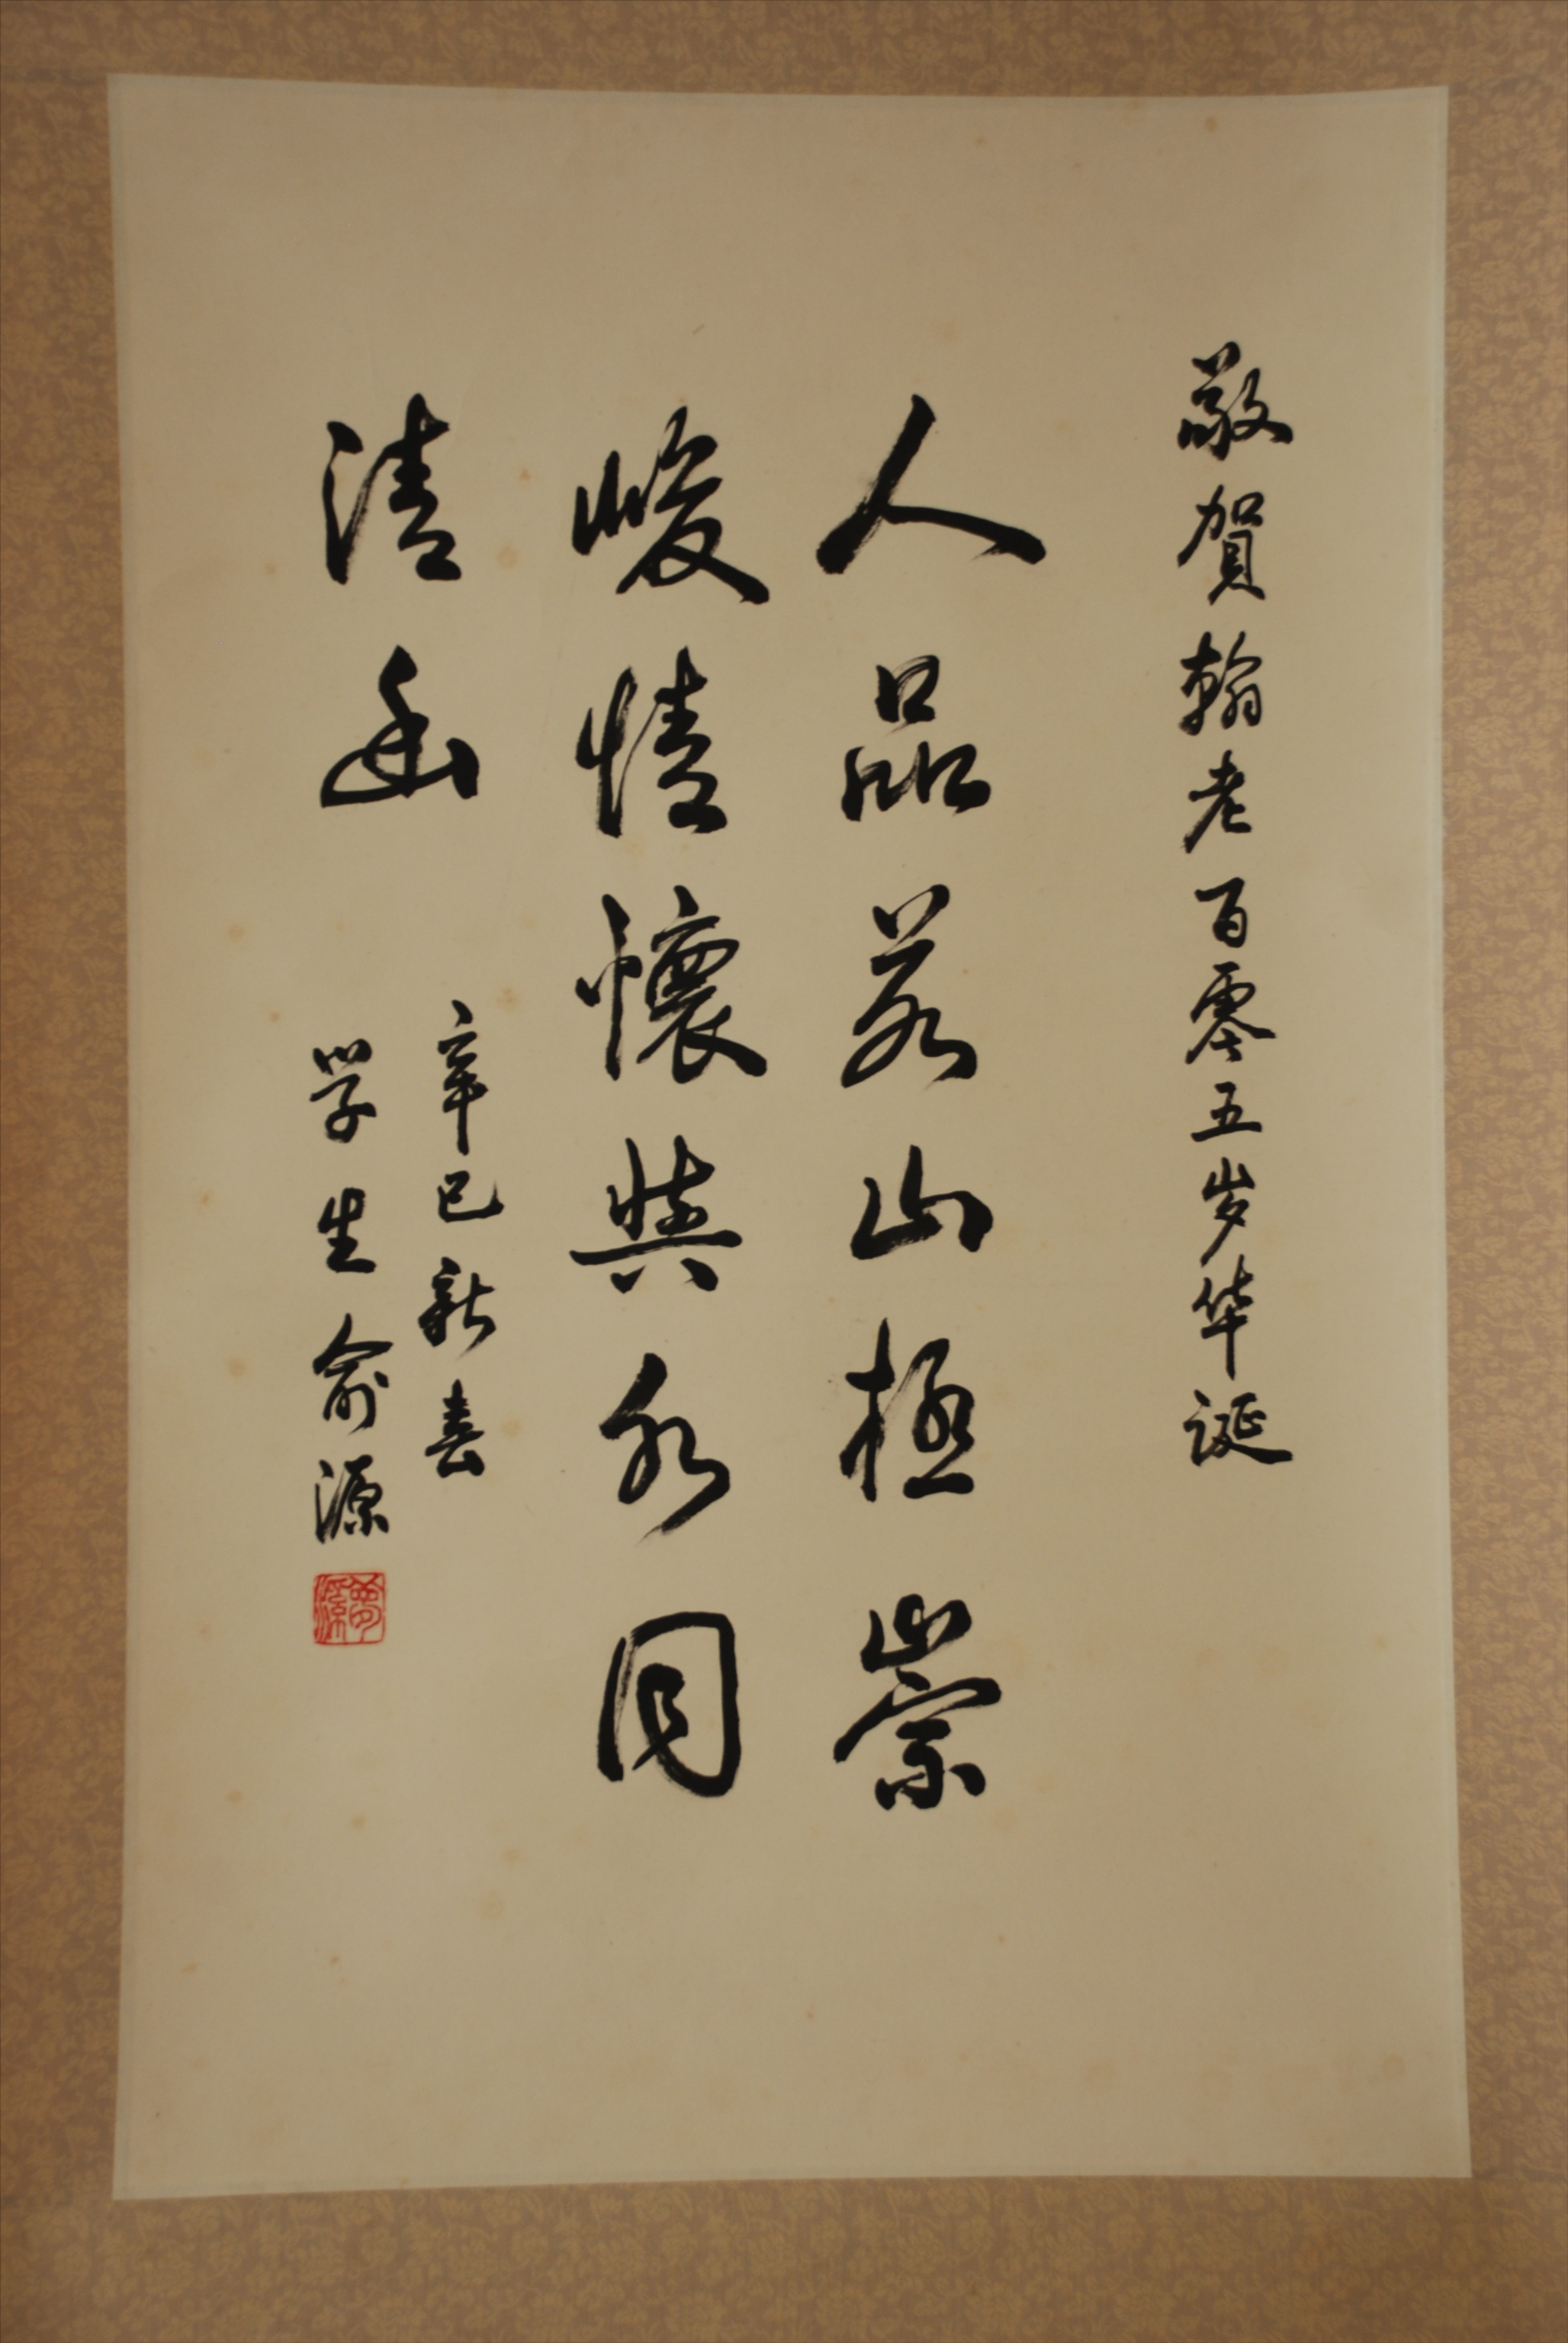 敬賀翰老百零五岁华诞
人品若山極崇
峻情懷與水同
清幽
辛巳新春
学生俞源